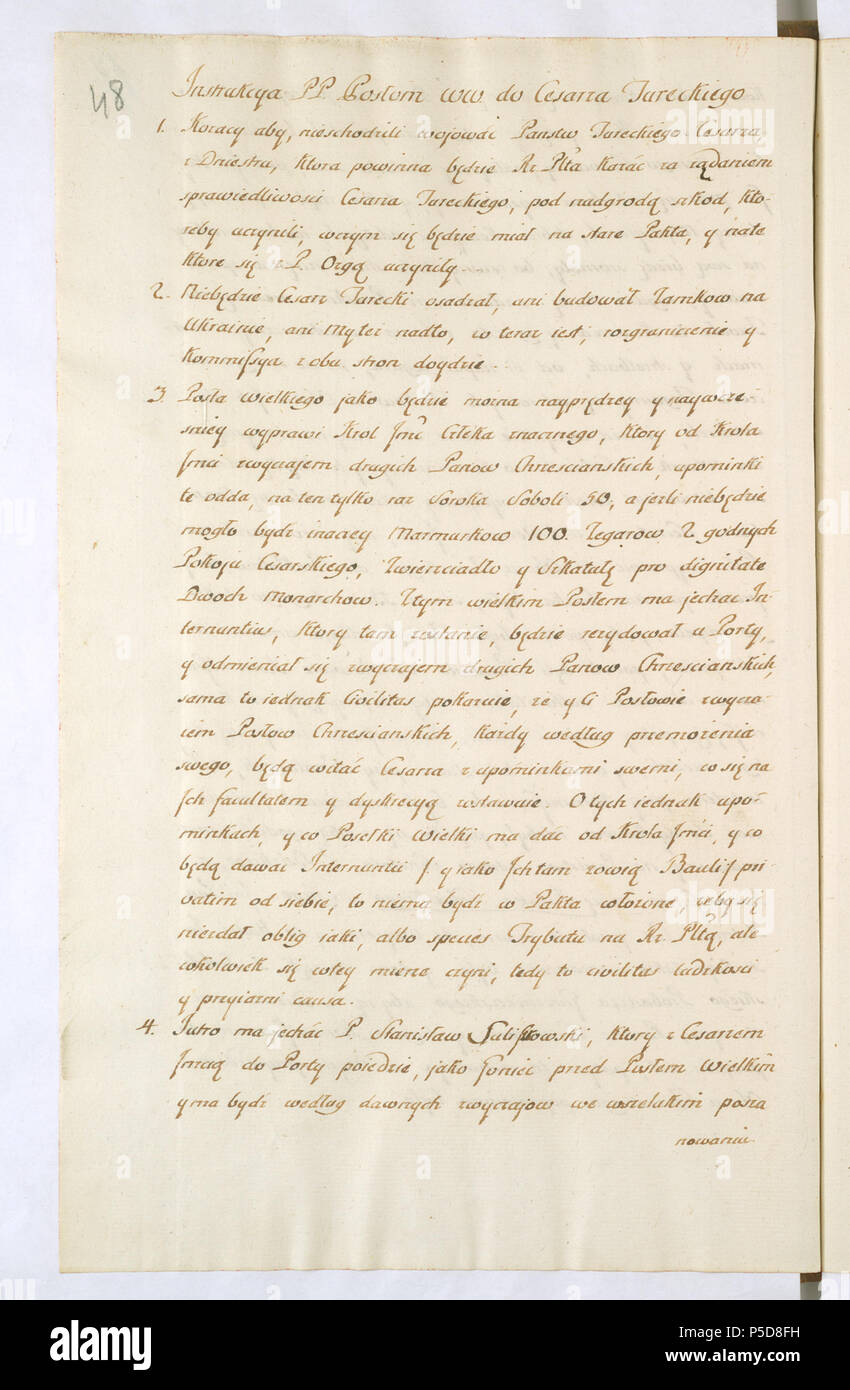 48
Instrukcya PP. Posłom ww do Cesarza Tureckiego
1. Kozacy aby, nieschodzili wojować Państw Tureckiego Cesarza,
z Dniestru, ktora powinna będzie Rz Plta karać za żądaniem
sprawiedliwosci Cesarza Tureckiego, pod nadgrodą szkod, kto-
reby uczynili, wczym się będzie miał na stare Pakta, y na te
ktore się z P. Orgą uczyniły
2. Niebędzie Cesarz Turecki osadzał, ani budował Zamkow na
Ukrainie, ani Myter nadto, co teraz iest, rozgraniczenie y
Kommissya z obu stron doydzie
3. Posła wielkiego jako będzie można nayprędzey y naywcze-
sniey wyprawi Krol Jmć Człeka znacznego, ktory od Krola
Jmci zwyczajem drugich Panow Chrzescianskich, upominki
te odda, na ten tylko raz Soroka Soboli 50, a jeżli niebędzie
mogło bydz inaczey Marmurkow 100. Zegarow 2 godnych
Pokoju Cesarskiego, Zwierciadło y Szkatułę pro dignitate
Dwoch Monarchow. Ztym wielkim Posłem ma jechac In-
ternuntius, ktory tam zostanie, będzie rezydował u Porty,
y odmieniał się zwyczajem drugich Panow Chrzescianskich,
sama to iednak Civilitas pokazuie, że y Ci Posłowie zwycza-
iem Posłow Chrzescianskich, każdy według przemożenia
swego, będą witać Cesarza z upominkami swemi, co się na
Jch facultatem y dyskrecyą zostawuie. O tych iednak upo-
minkach, y co Posełki Wielki ma dac od Krola Jmci, y co
będą dawac Internuntii /: y iako Jch tam zowią Bauli :/ pri
vatim od siebie, to niema bydz w Pakta włożone, żeby się
niezdał oblig iaki, albo species Trybutu na Rz Pltą, ale
cokolwiek się wtey mierze czyni, tedy to civilitas ludzkosci
y przyiazni causa.
4. Jutro ma jechác P. Stanisław Sulistrowski, ktory z Cesarzem
Jmcią do Porty poiedzie, jako goniec przed Posłem Wielkim
y ma bydz według dawnych zwyczajow we wszelakim posza
nowaniu
alamy
a
alamy
Image ID: P5D8FH
www.alamy.com